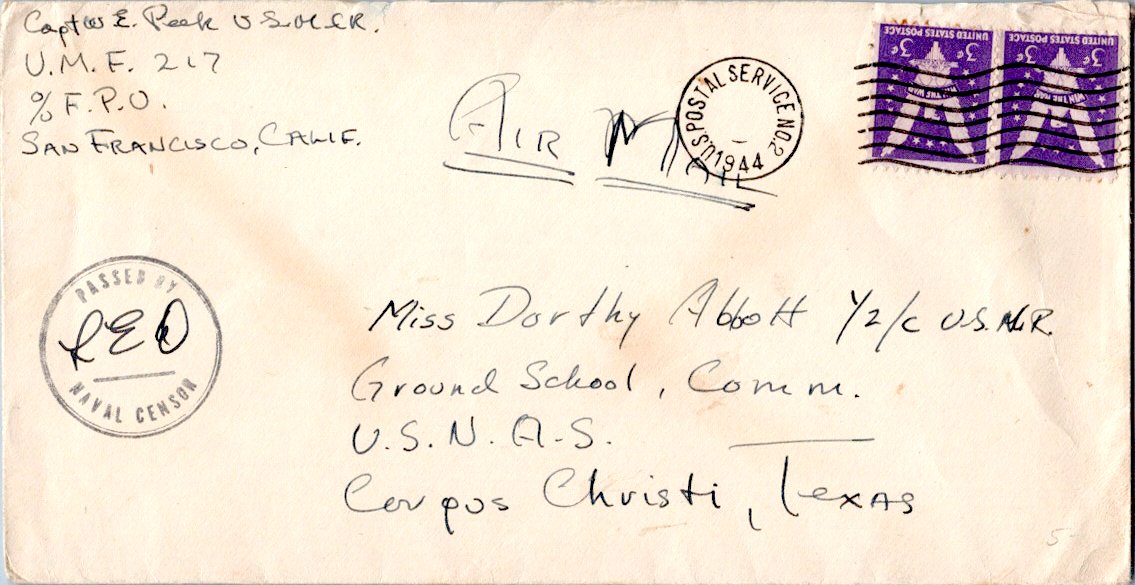 Capt W E. Peek U S M C R.
V. M. F. 217
% F. P. O.
SAN FRANCISCO, CALIF.
AIR MAIL
U.S. POSTAL SERVICE NO. 2
1944
UNITED STATES POSTAGE
3¢ 3¢
WIN THE WAR
UNITED STATES POSTAGE
3¢ 3¢
WIN THE WAR
PASSED BY
NAVAL CENSOR
Miss Dorthy Abbott Y2/c U.S.N.R.
Ground School, Comm.
U.S.N.A.S.
Corpus Christi, Texas
5